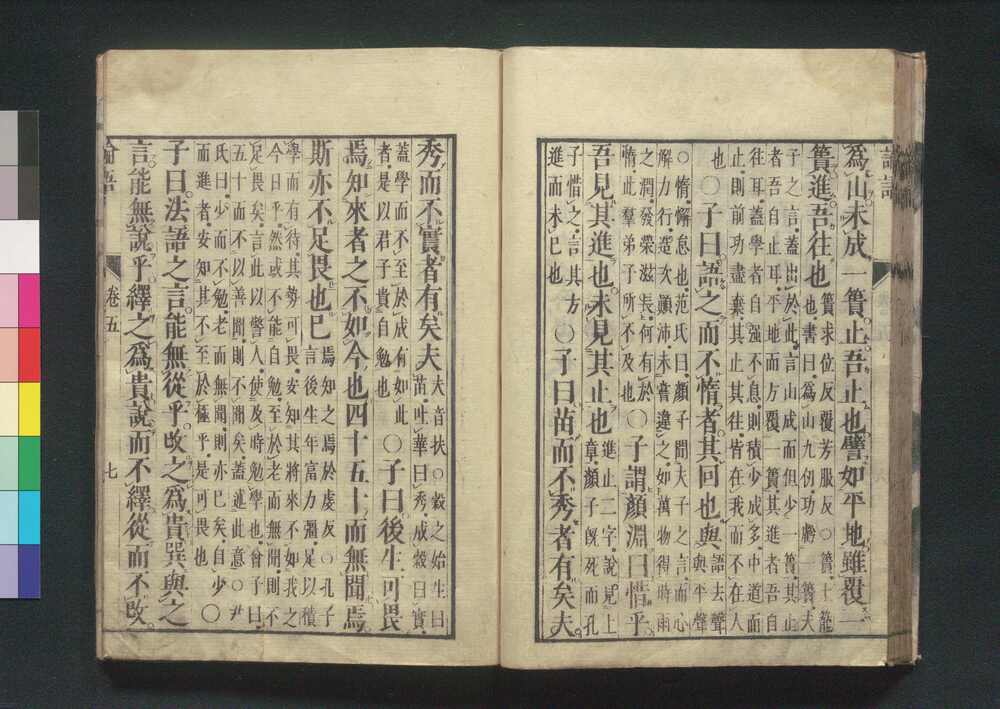 爲山未成一簣止吾止也譬如平地雖覆一
簣進吾往也
簣求位反覆芳服反○簣土籠
也書曰爲山九仞功虧一簣夫
子之言蓋出於此言山成而但少一簣其止
者吾自止耳平地而方覆一簣其進者吾自
往耳蓋學者自强不息則積少成多中道而
止則前功盡棄其止其往皆在我而不在人
也
○子曰語之而不惰者其回也與
語去聲
與平聲
○惰懈怠也范氏曰顏子聞夫子之言而心
解力行造次顚沛未嘗違之如萬物得時雨
之潤發榮滋長何有於
惰此羣弟子所不及也
○子謂顏淵曰惜乎
吾見其進也未見其止也
進止二字說見上
章顏子旣死而孔
子惜之言其方
進而未已也
○子曰苗而不秀者有矣夫
秀而不實者有矣夫
夫音扶○穀之始生曰
苗吐華曰秀成穀曰實
蓋學而不至於成有如此
者是以君子貴自勉也
○子曰後生可畏
焉知來者之不如今也四十五十而無聞焉
斯亦不足畏也已
焉知之焉於虔反○孔子
言後生年富力彊足以積
學而有待其勢可畏安知其將來不如我之
今日乎然或不能自勉至於老而無聞則不
足畏矣言此以警人使及時勉學也曾子曰
五十而不以善聞則不聞矣蓋述此意○尹
氏曰少而不勉老而無聞則亦已矣自少
而進者安知其不至於極乎是可畏也
○
子曰法語之言能無從乎改之爲貴巽與之
言能無說乎繹之爲貴說而不繹從而不改
論語
卷五
七